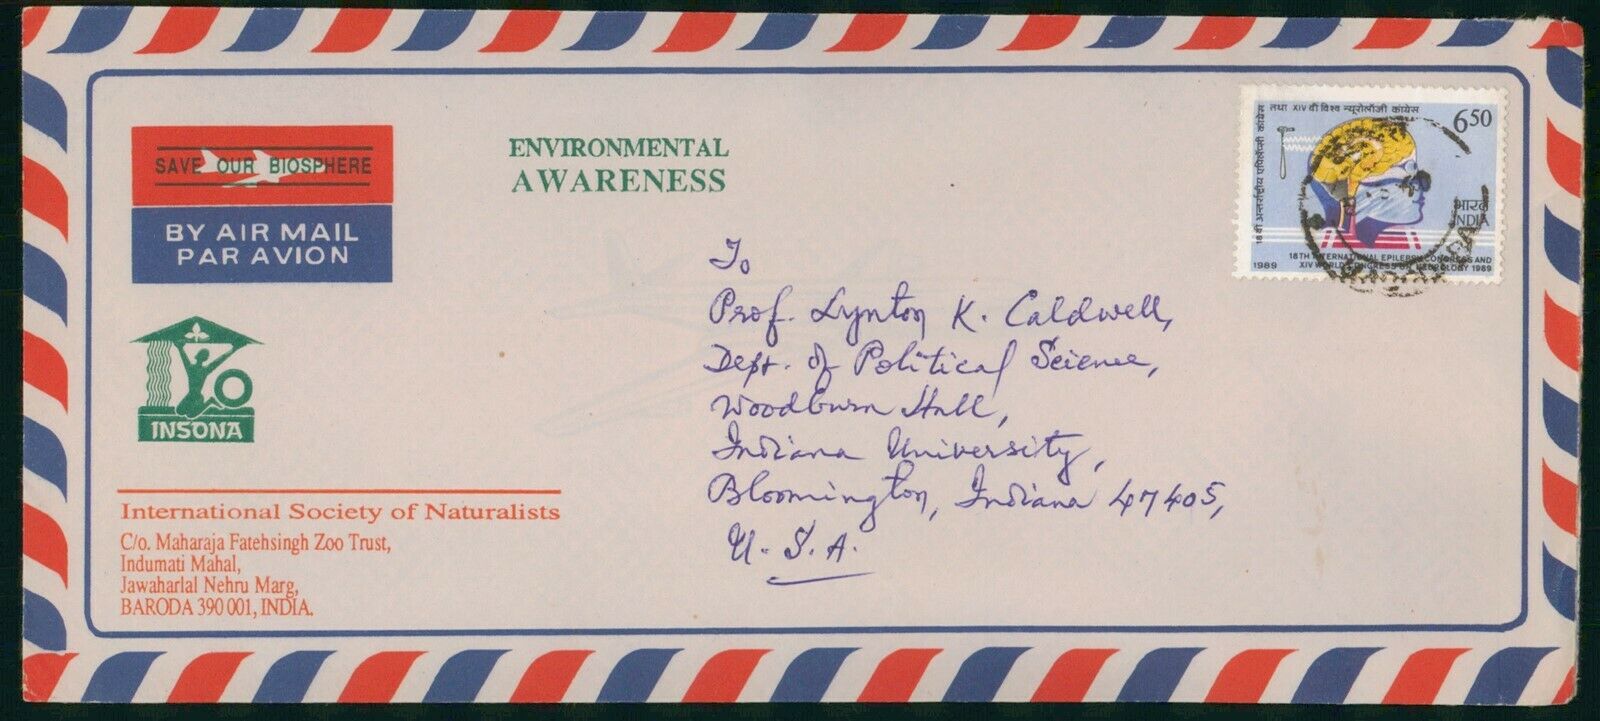 SAVE OUR BIOSPHERE
BY AIR MAIL
PAR AVION
INSONA
International Society of Naturalists
C/o. Maharaja Fatehsingh Zoo Trust,
Indumati Mahal,
Jawaharlal Nehru Marg,
BARODA 390 001, INDIA.
ENVIRONMENTAL
AWARENESS
To
Prof. Lynton K. Caldwell,
Dept. of Political Science,
Woodburn Hall,
Indiana University,
Bloomington, Indiana 47405,
U.S.A.
18वीं अन्तर्राष्ट्रीय एपिलेप्सी कांग्रेस
तथा XIV वीं विश्व न्यूरोलॉजी कांग्रेस
650
भारत
INDIA
18TH INTERNATIONAL EPILEPSY CONGRESS AND
XIV WORLD CONGRESS ON NEUROLOGY 1989
1989